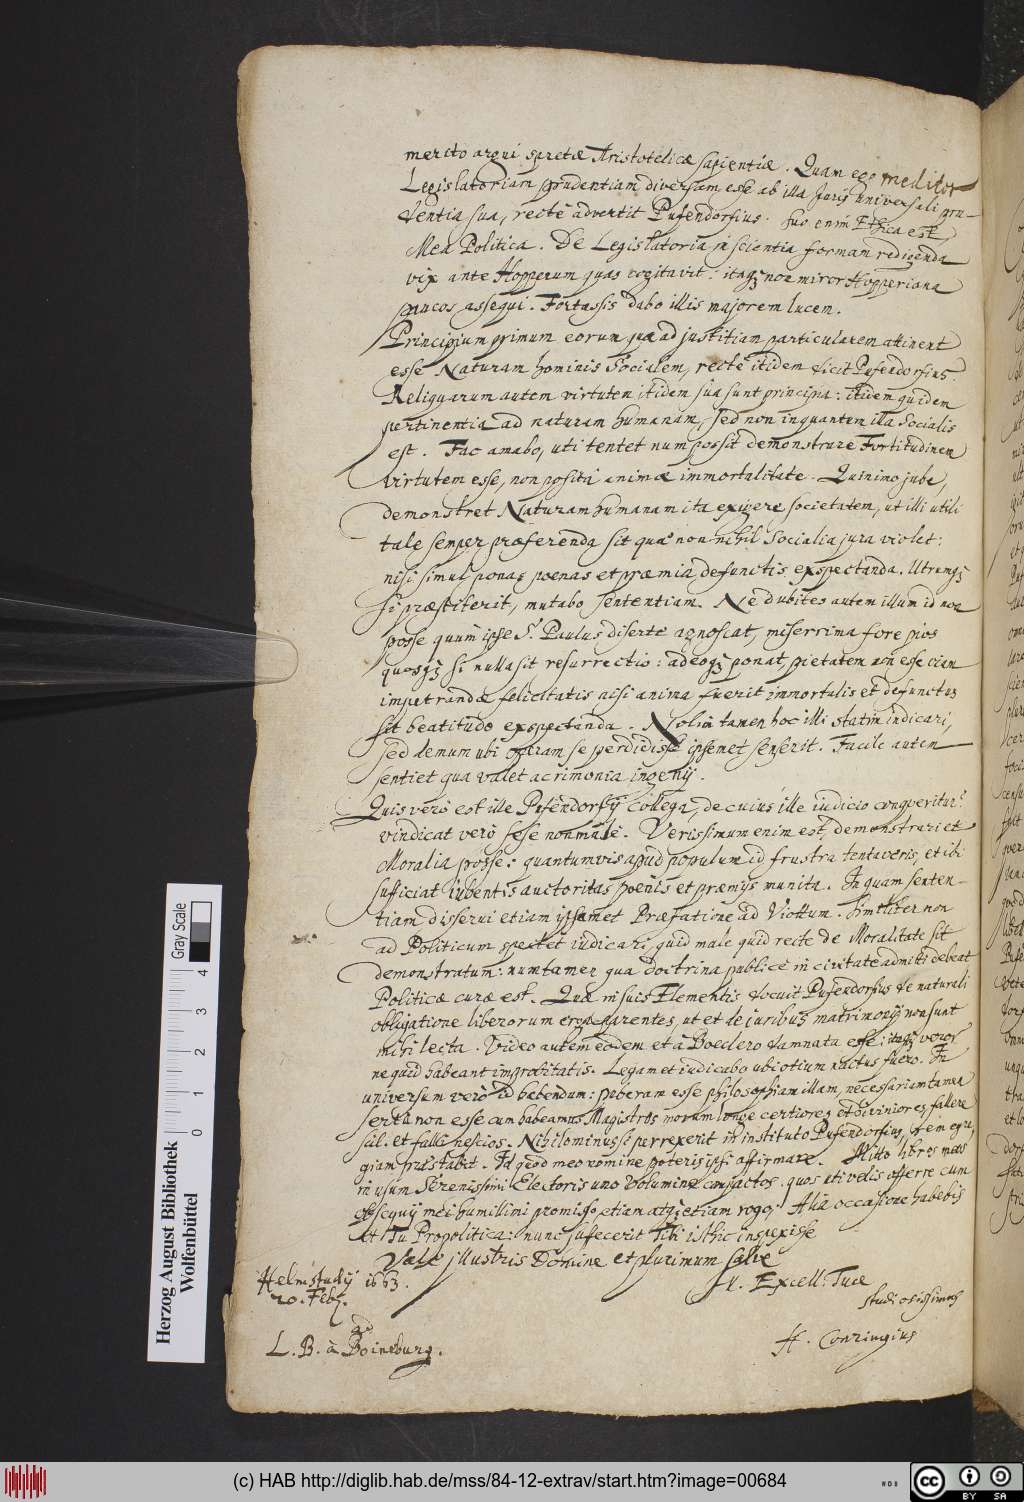 merito argui spretæ Aristotelicæ sapientiæ. Quam ego meditor
Legislatoriam prudentiam diversam esse ab illa Juris Universali pru-
dentia sua, rectè advertit Pufendorfius. Sua enim Ethica est,
Mea Politica. De Legislatoria in scientia formam redigenda
vix ante Hopperum quas cogitavit: itaq; non miror Hopperiana
paucos assequi. Fortassis dabo illis majorem lucem.
Principium primum eorum quæ ad justitiam particularem attinent
esse Naturam hominis Socialem, rectè itidem dicit Pufendorfius.
Reliquarum autem virtutem itidem sua sunt principia: itidem quidem
pertinentia ad naturam humanam, sed non inquantum illa Socialis
est. Fac amabo, uti tentet num possit demonstrare Fortitudinem
virtutem esse, non posita animæ immortalitate. Quinimo jube,
demonstret Naturam humanam ita exigere societatem, ut illi utili
tale semper præferenda sit qua nonnihil Socialia jura violet:
nisi simul ponas poenas et præmia defunctis exspectanda. Utrumq;
si præstiterit, mutabo sententiam. Ne dubites autem illum id non
posse quum ipse S. Paulus disertè agnoscat, miserrima fore pios
quosq; si nulla sit resurrectio: adeoq; ponat, pietatem non esse viam
impetrandæ felicitatis nisi anima fuerit immortalis et defunctus
sit beatitudo exspectanda. Nolim tamen hoc illi statim indicari,
sed demum ubi operam se perdidisse ipsemet senserit. Facile autem
sentiet qua valet acrimonia ingenij.
Quis verò est ille Pufendorfij Collega, de cuius ille iudicio conqveritur?
vindicat verò sese non malè. Verissimum enim est, demonstrari et
Moralia posse: quantumvis apud populum id frustra tentaveris, et ibi
sufficiat iubentis auctoritas poenis et præmijs munita. In quam senten-
tiam disserui etiam ipsemet Præfatione ad Viottum. Similiter non
ad Politicum spectet iudicari, quid male quid recte de Moralitate sit
demonstratum: num tamen qua doctrina publicè in civitate admitti debeat
Politicæ curæ est. Quæ in suis Elementis docuit Pufendorfius de naturali
obligatione liberorum erga parentes, ut et de juribus matrimonij non sunt
mihi lecta. Video autem eodem et à Boeclero damnata esse: itaq; vereor
ne quid habeant improbitatis. Legam et iudicabo ubi otium nactus fuero. In
universum verò id bebendum: puberam esse philosophiam illam, necessariam tamen
sertu non esse cum habeamus Magistros morum longe certiores et diviniores, fallere
scil. et falli nescios. Nihilominus si perrexerit in instituto Pufendorfius, rem egre-
giam præstabit. Id quod meo nomine poteris ipsi affirmare. Mitto libros meos
in usum Serenissimi Electoris uno volumine compactos. quos uti velis offerre cum
obsequij mei humillimi promisso, etiam atq; etiam rogo. Alia occasione habebis
et Tu Propolitica: nunc suffecerit Tibi isthic inspexisse
Vale illustris Domine et plurimum salve
Helmstadij 1663.
20. Feb.
Ill. Excell: Tuæ
studiosissimus
ad
L. B. à Boineburg.
H. Conringius
Herzog August Bibliothek
Wolfenbüttel
Gray Scale
0 1 2 3 4
(c) HAB http://diglib.hab.de/mss/84-12-extrav/start.htm?image=00684
cc BY SA